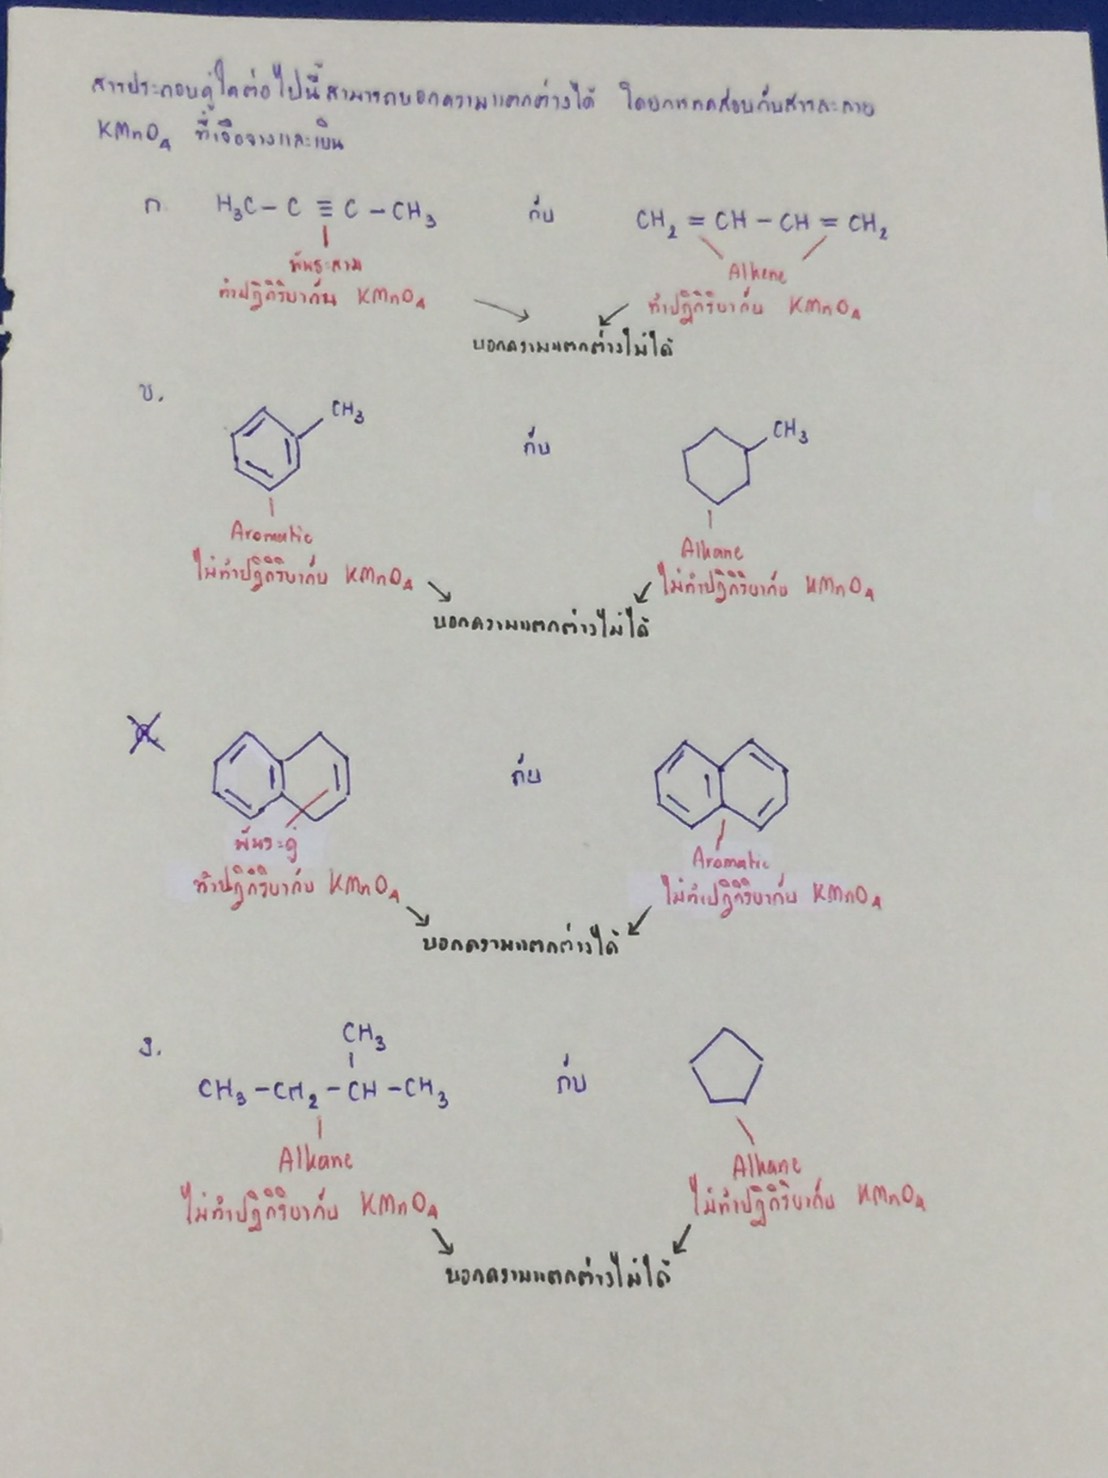 สารประกอบคู่ใดต่อไปนี้สามารถบอกความแตกต่างได้ โดยการทดสอบกับสารละลาย
KMnO4 ที่เจือจางและเย็น
ก. H3C - C ≡ C - CH3 กับ CH2 = CH - CH = CH2
พันธะสาม Alkene
ทำปฏิกิริยากับ KMnO4 ทำปฏิกิริยากับ KMnO4
บอกความแตกต่างไม่ได้
ข. CH3 กับ CH3
Aromatic Alkane
ไม่ทำปฏิกิริยากับ KMnO4 ไม่ทำปฏิกิริยากับ KMnO4
บอกความแตกต่างไม่ได้
ค กับ
พันธะคู่ Aromatic
ทำปฏิกิริยากับ KMnO4 ไม่ทำปฏิกิริยากับ KMnO4
บอกความแตกต่างได้
CH3
ง. CH3 - CH2 - CH - CH3 กับ
Alkane Alkane
ไม่ทำปฏิกิริยากับ KMnO4 ไม่ทำปฏิกิริยากับ KMnO4
บอกความแตกต่างไม่ได้